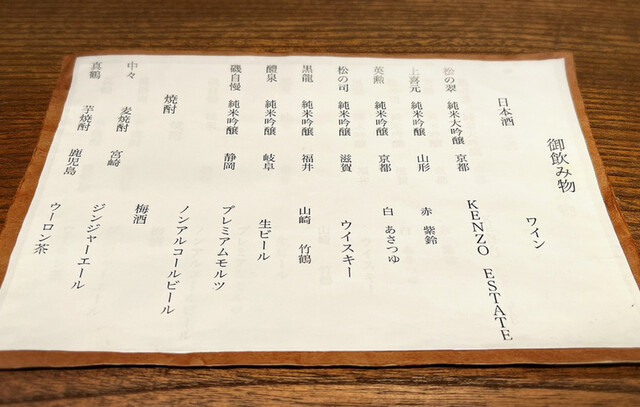 御飲み物
日本酒
松の翠 純米大吟醸 京都
上喜元 純米吟醸 山形
英勲 純米吟醸 京都
松の司 純米吟醸 滋賀
黒龍 純米吟醸 福井
醴泉 純米吟醸 岐阜
磯自慢 純米吟醸 静岡
焼酎
中々 麦焼酎 宮崎
真鶴 芋焼酎 鹿児島
ワイン
KENZO ESTATE
赤 紫鈴
白 あさつゆ
ウイスキー
山崎 竹鶴
生ビール
プレミアムモルツ
ノンアルコールビール
梅酒
ジンジャーエール
ウーロン茶